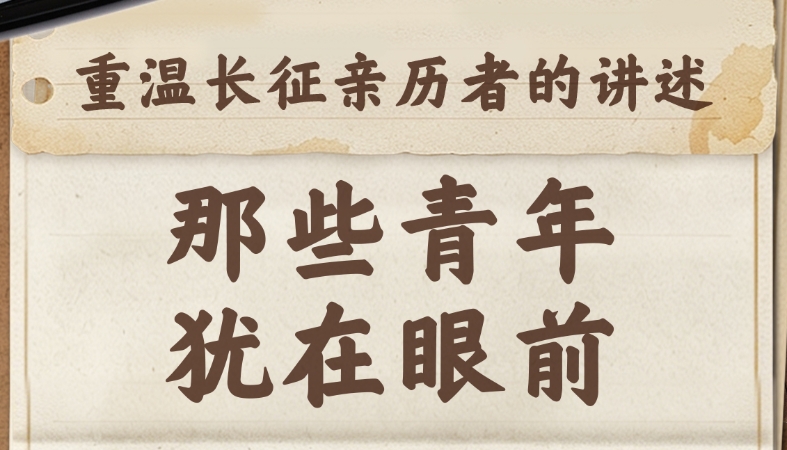 重温长征亲历者的讲述
那些青年
犹在眼前